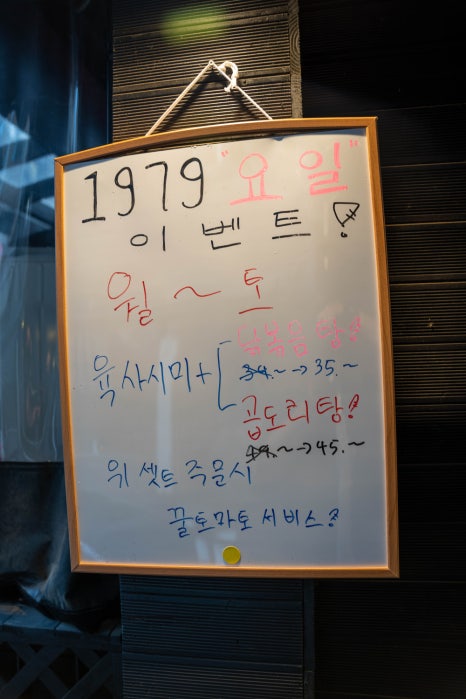 1979 "요일"
이벤트!
월 ~ 토
육사시미 +
볶음
~ → 35.~
곱도리탕!
~ → 45.~
위 셋트 주문시
꿀토마토 서비스!